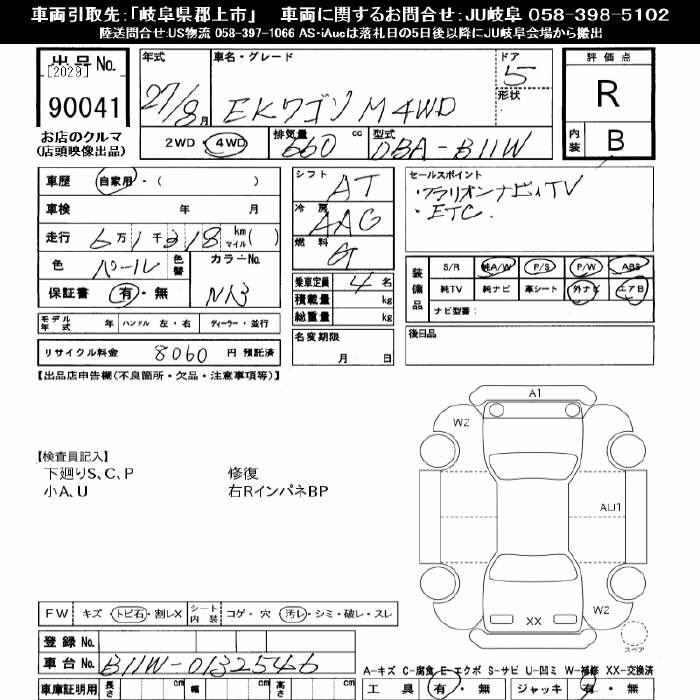 車両引取先:「岐阜県郡上市」　車両に関するお問合せ:JU岐阜 058-398-5102
陸送問合せ:US物流 058-397-1066 AS-iAucは落札日の5日後以降にJU岐阜会場から搬出
出品No.
[2029]
90041
お店のクルマ
(店頭映像出品)
年式 車名・グレード ドア
27/8月 EKワゴン M 4WD 5
形状
2WD・4WD 排気量 660 cc 型式 DBA-B11W
評価点
R
内装 B
車歴 自家用・( )
車検 年 月
走行 6万1千318 km マイル( )
色 パール 色替 カラーNo.
保証書 有・無
シフト AT
冷房 AAC
燃料 G
乗車定員 4 名
積載量 kg
総重量 kg
名変期限
月 日
セールスポイント
・クラリオンナビ、TV
・ETC.
装備品 S/R 純A/W P/S P/W ABS
純TV 純ナビ 革シート 外ナビ エアB
ナビ型番:
後日品
モデル年式 年 ハンドル 左・右 ディーラー・並行
リサイクル料金 8060 円 預託済
【出品店申告欄(不良箇所・欠品・注意事項等)】
【検査員記入】
下廻りS、C、P 修復
小A、U 右RインパネBP
A1
W2
AU1
W2
XX
スペア
FW キズ・トビ石・割レX シート内装 コゲ・穴・汚レ・シミ・破レ・スレ
登録No.
車台No. B11W-0132546
車庫証明用 長さ cm 幅 cm 高さ cm
A-キズ C-腐食 E-エクボ S-サビ U-凹ミ W-補修 XX-交換済
工具 有・無 ジャッキ 有・無